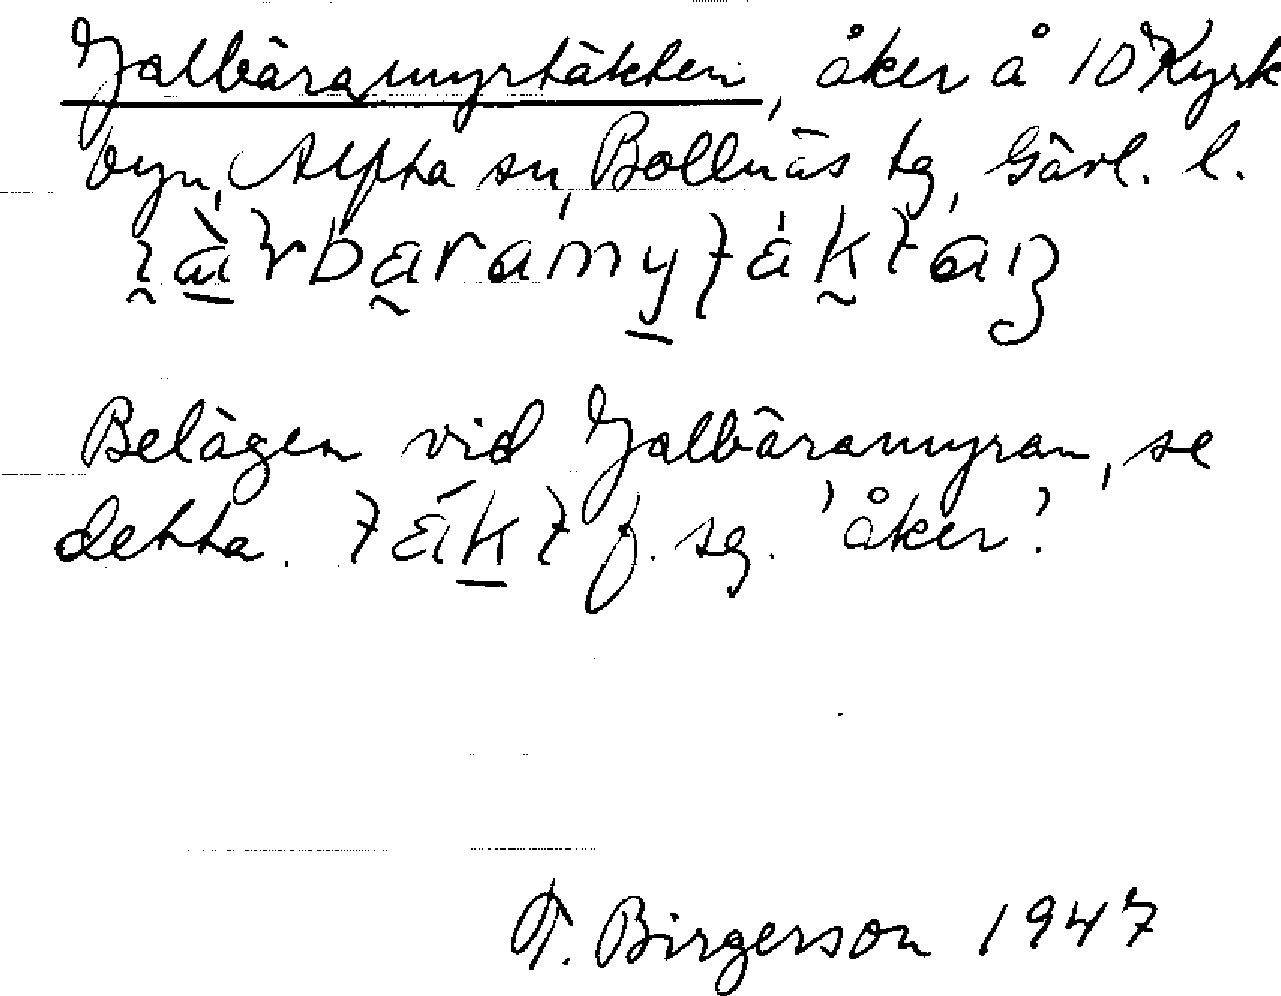 Jalbäramyrtäkten, åker å 10 Kyrk
byn, Alfta sn, Bollnäs tg, Gävl. l.
Belägen vid Jalbäramyran, se
detta. f. sg. 'åker'.
T. Birgerson 1947